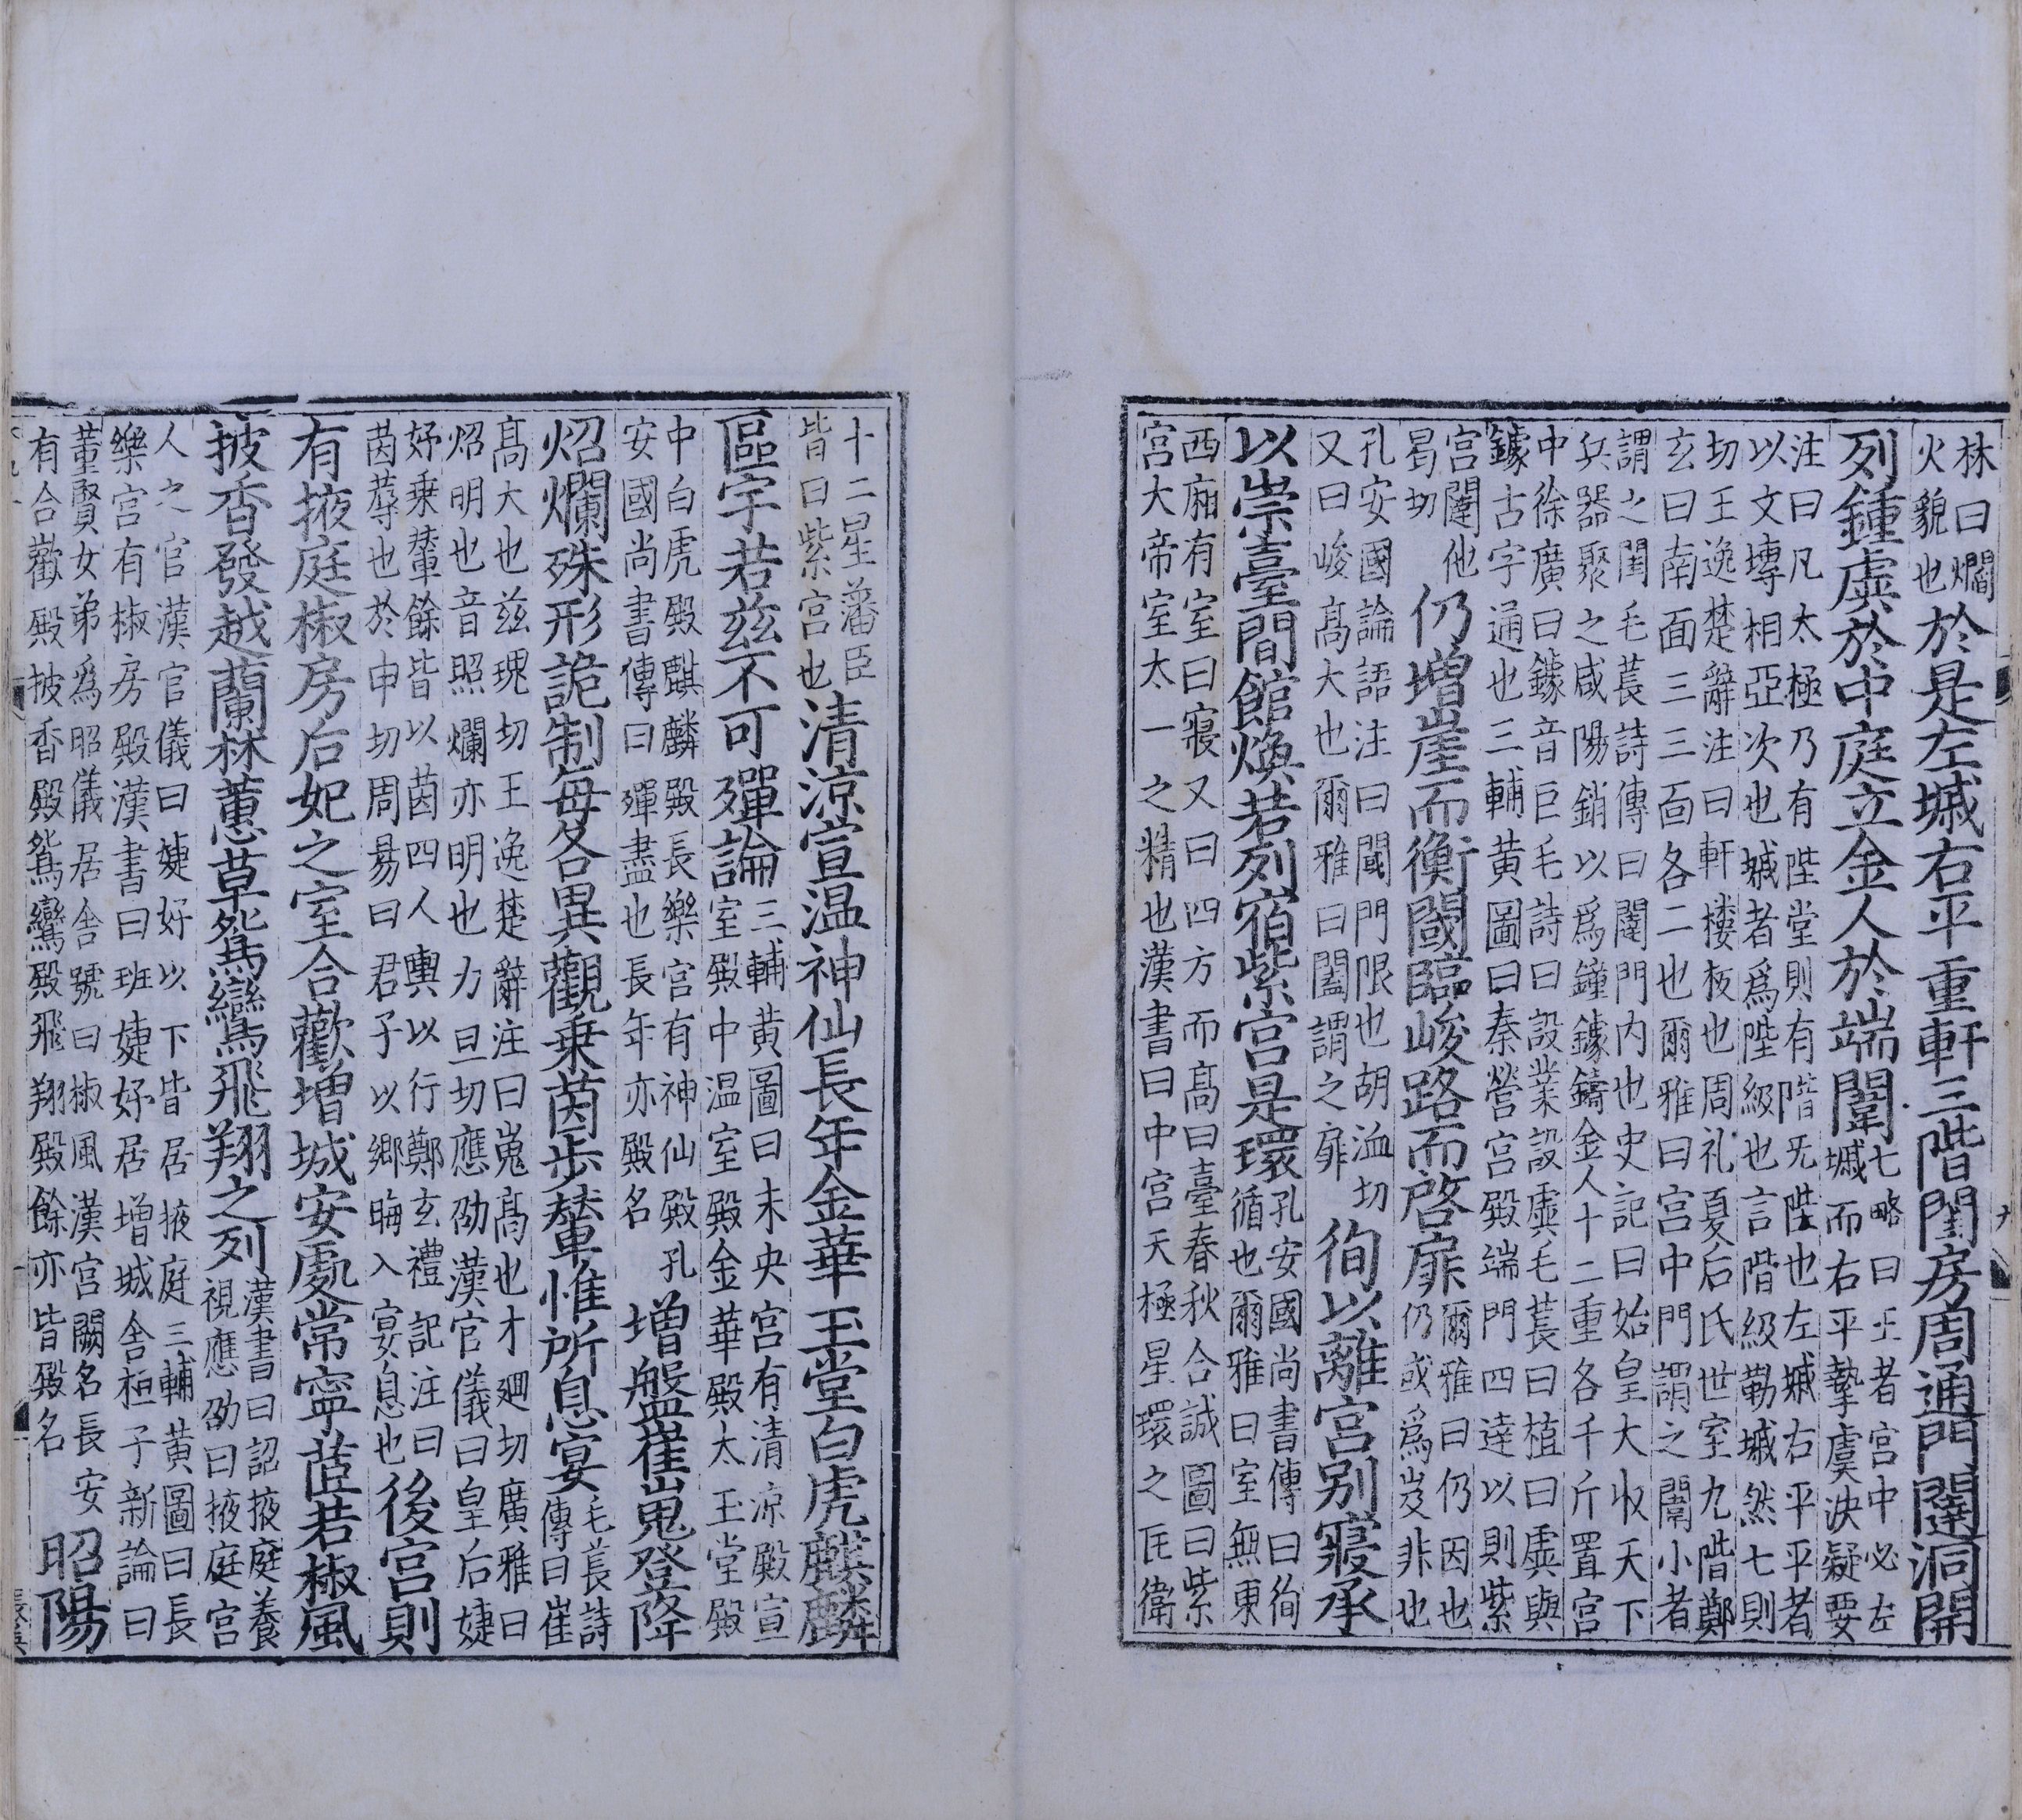 林曰爓
火貌也
於是左墄右平重軒三階閨房周通門闥洞開
列鍾虡於中庭立金人於端闈
七略曰王者宫中必左
墄而右平摯虞决疑要
注曰凡太極乃有陛堂則有階无陛也左墄右平平者
以文塼相亞次也墄者爲陛級也言階級勒墄然七則
切王逸楚辭注曰軒樓板也周礼夏后氏世室九階鄭
玄曰南面三三面各二也爾雅曰宫中門謂之闈小者
謂之閨毛萇詩傳曰闥門内也史記曰始皇大收天下
兵器聚之咸陽銷以爲鐘鐻鑄金人十二重各千斤置宫
中徐廣曰鐻音巨毛詩曰設業設虡毛萇曰植曰虡與
鐻古字通也三輔黄圖曰秦營宫殿端門四達以則紫
宫闥他
曷切
仍增崖而衡閾臨峻路而啓扉
爾雅曰仍因也
仍或爲岌非也
孔安國論語注曰閾門限也胡洫切
又曰峻高大也爾雅曰闔謂之扉
徇以離宫别寑承
以崇臺閒館煥若列宿紫宫是環
孔安國尚書傳曰徇
循也爾雅曰室無東
西廂有室曰寢又曰四方而高曰臺春秋合誠圖曰紫
宫大帝室太一之精也漢書曰中宫天極星環之匡衛
十二星藩臣
皆曰紫宫也
清涼宣温神仙長年金華玉堂白虎麒麟
區宇若兹不可殫論
三輔黄圖曰未央宫有清涼殿宣
室殿中温室殿金華殿太玉堂殿
中白虎殿麒麟殿長樂宫有神仙殿孔
安國尚書傳曰殫盡也長年亦殿名
增盤崔嵬登降
炤爛殊形詭制每各異觀乗茵步輦惟所息宴
毛萇詩
傳曰崔
高大也兹瑰切王逸楚辭注曰嵬高也才廻切廣雅曰
炤明也音照爛亦明也力旦切應劭漢官儀曰皇后婕
妤乗輦餘皆以茵四人輿以行鄭玄禮記注曰
茵蓐也於申切周易曰君子以嚮晦入宴息也
後宫則
有掖庭椒房后妃之室合歡增城安處常寧茝若椒風
披香發越蘭林蕙草鴛鸞飛翔之列
漢書曰詔掖庭養
視應劭曰掖庭宫
人之官漢官儀曰婕妤以下皆居掖庭三輔黄圖曰長
樂宫有椒房殿漢書曰班婕妤居增城舍桓子新論曰
董賢女弟爲昭儀居舍號曰椒風漢宫闕名長安
有合歡殿披香殿鴛鸞殿飛翔殿餘亦皆殿名
昭陽